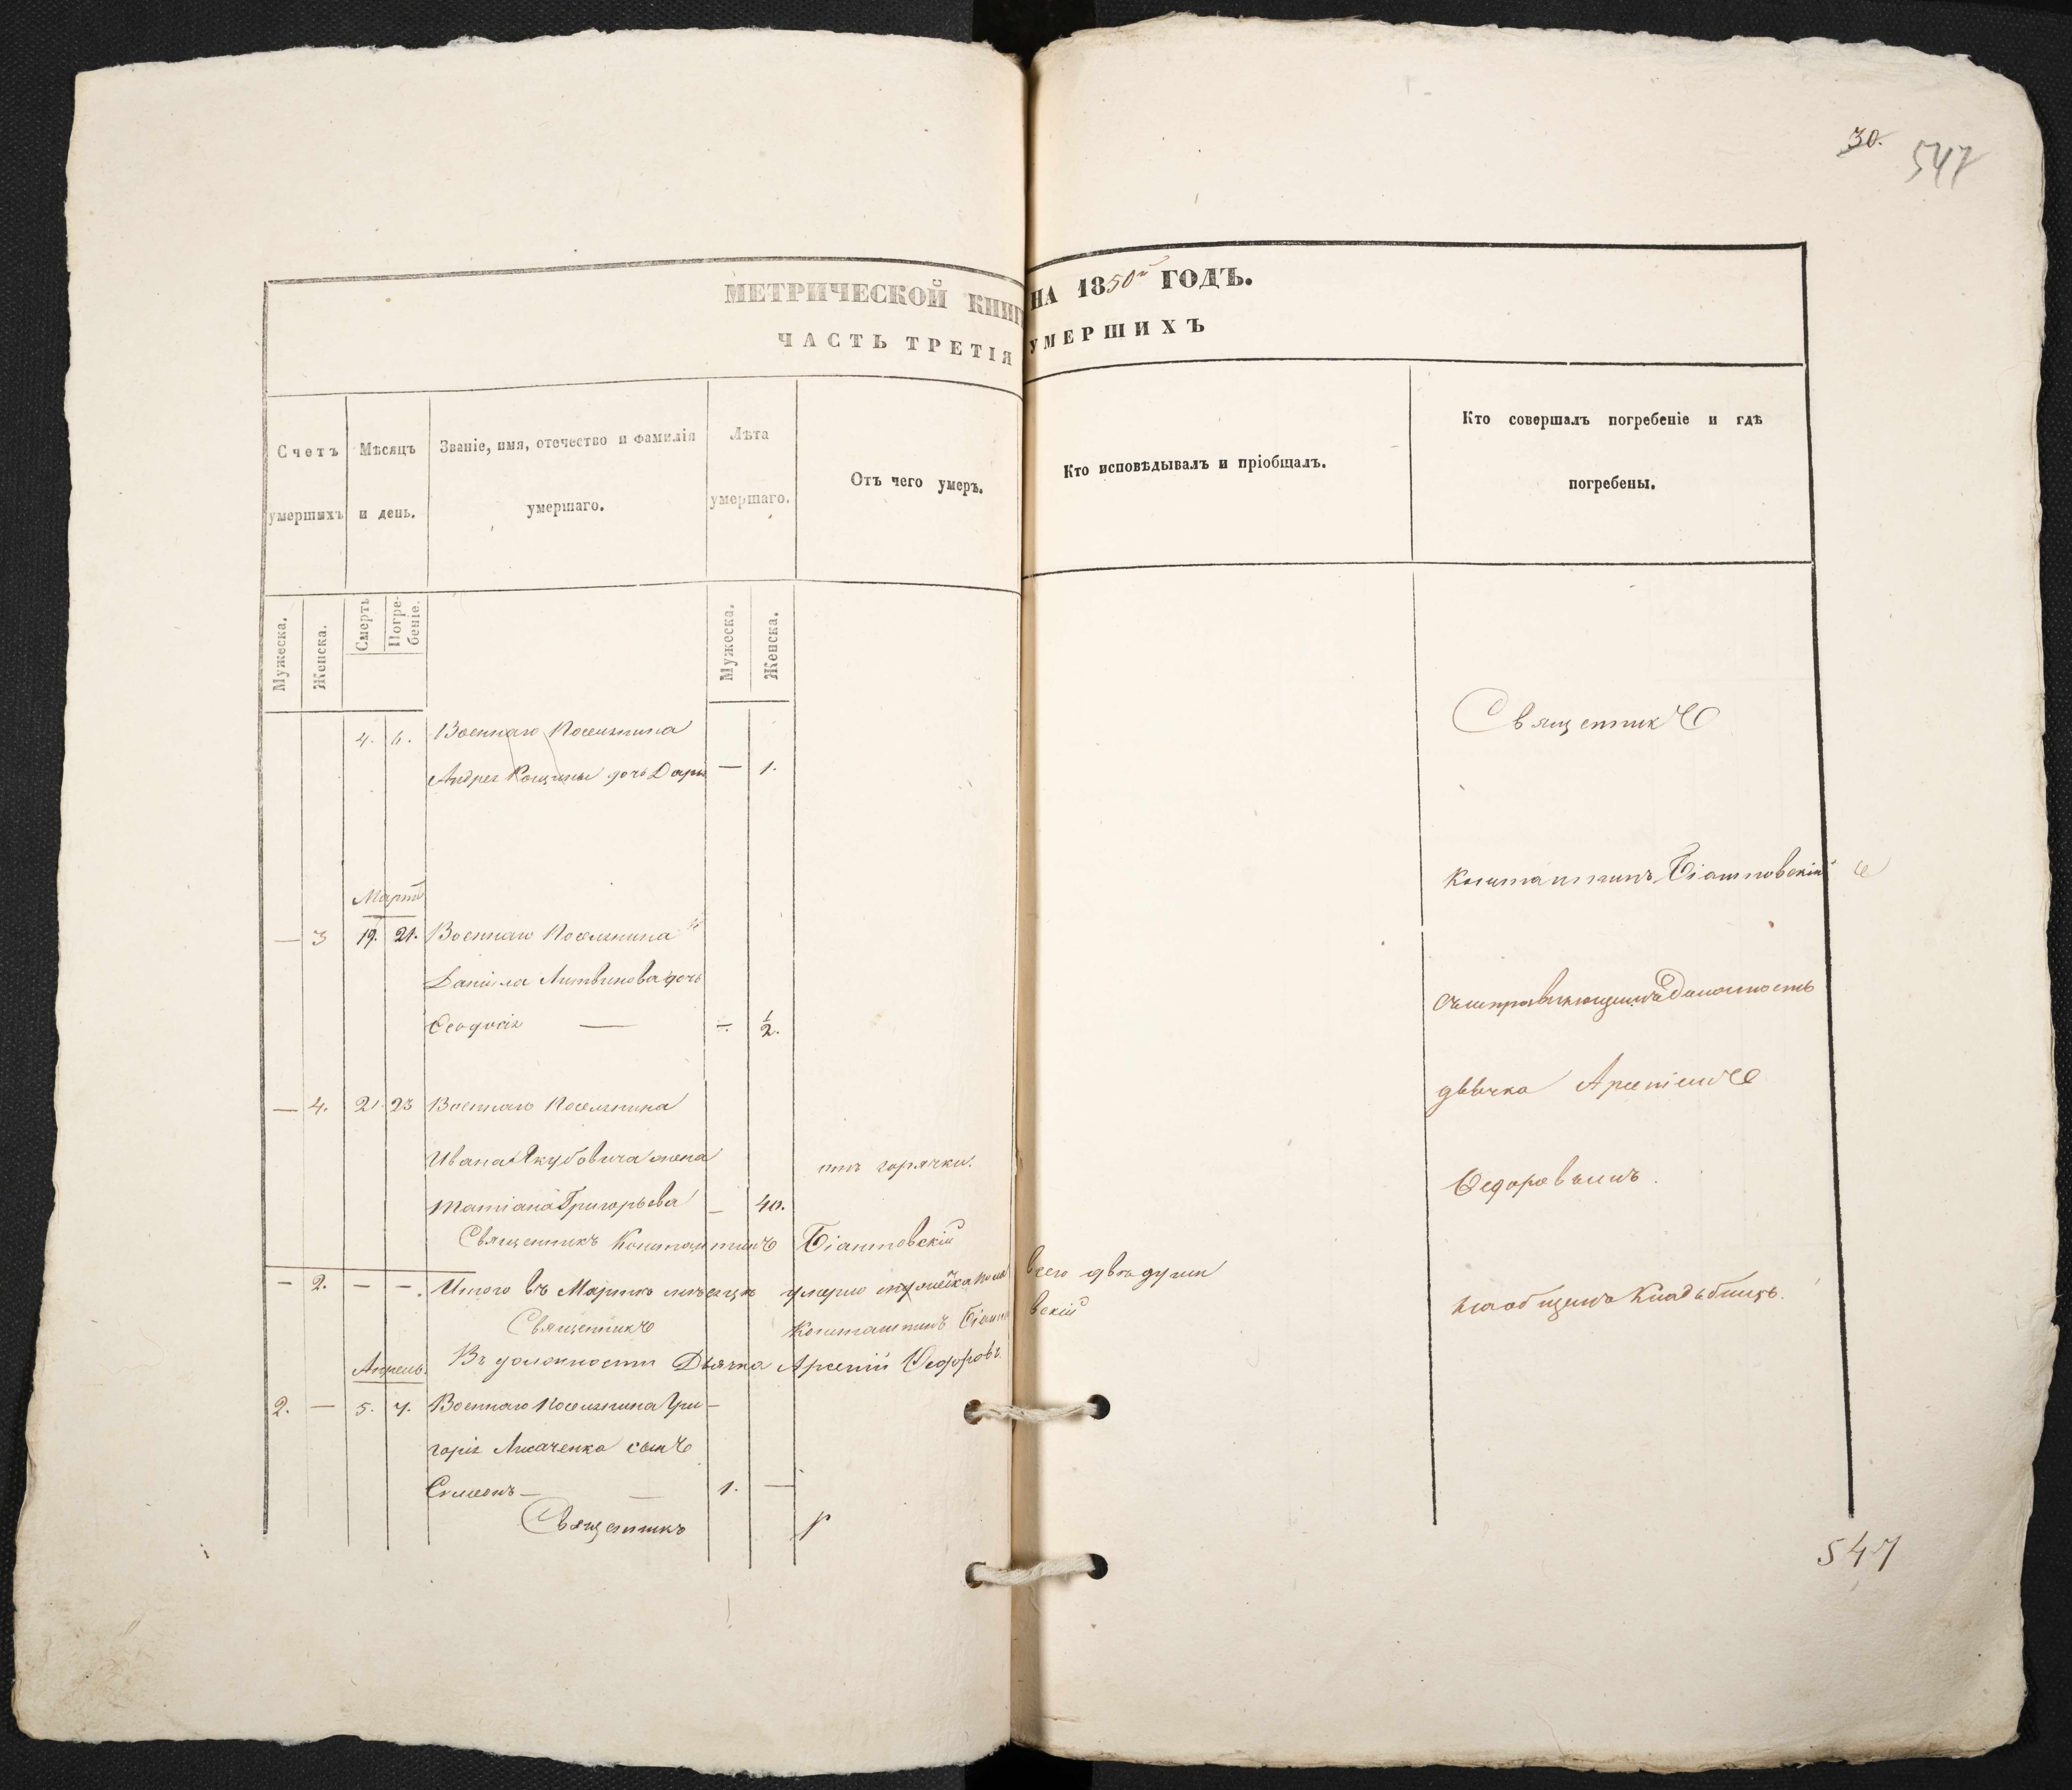 30.
547
МЕТРИЧЕСКОЙ КНИГ НА 1850й ГОДЪ.
ЧАСТЬ ТРЕТІЯ УМЕРШИХЪ
Счетъ умершихъ
Мѣсяцъ и день.
Званіе, имя, отечество и фамилія умершаго.
Лѣта умершаго.
Отъ чего умеръ.
Кто исповѣдывалъ и пріобщалъ.
Кто совершалъ погребеніе и гдѣ погребены.
Мужеска.
Женска.
Смерть
Погре-
беніе.
Мужеска.
Женска.
4. 6. Военнаго Поселянина
Андрея дочь Дарія — 1.
Мартъ
— 3 19. 21. Военнаго Поселянина
Данiила Литвинова дочь
Ѳеодосія — —. ½.
— 4. 21. 23 Военнаго Поселянина
Ивана Якубовича жена отъ горячки.
Татіана Григорьева — 40.
Священникъ Константинъ Біантовскій
— 2. — —. Итого въ Мартѣ мѣсяцѣ умерло женска пола всего двѣ души
Священникъ Константинъ Біантовскій
Въ должности Дьячка Арсеній Ѳедоровъ.
Апрель.
2. — 5. 7. Военнаго Поселянина Гри-
горія Лисаченка сынъ
Симеонъ — — 1. —
Священникъ
Священникъ
Константинъ Біантовскій съ
исправляющимъ должность
дьячка Арсеніемъ
Ѳедоровымъ.
на общемъ кладбищѣ.
547